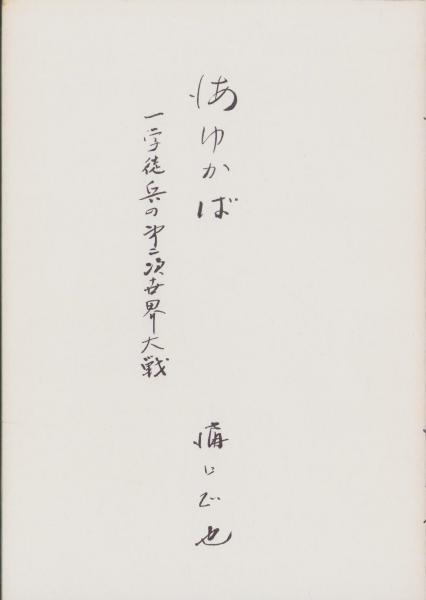 海ゆかば
一学徒兵の第二次世界大戦
溝口正也